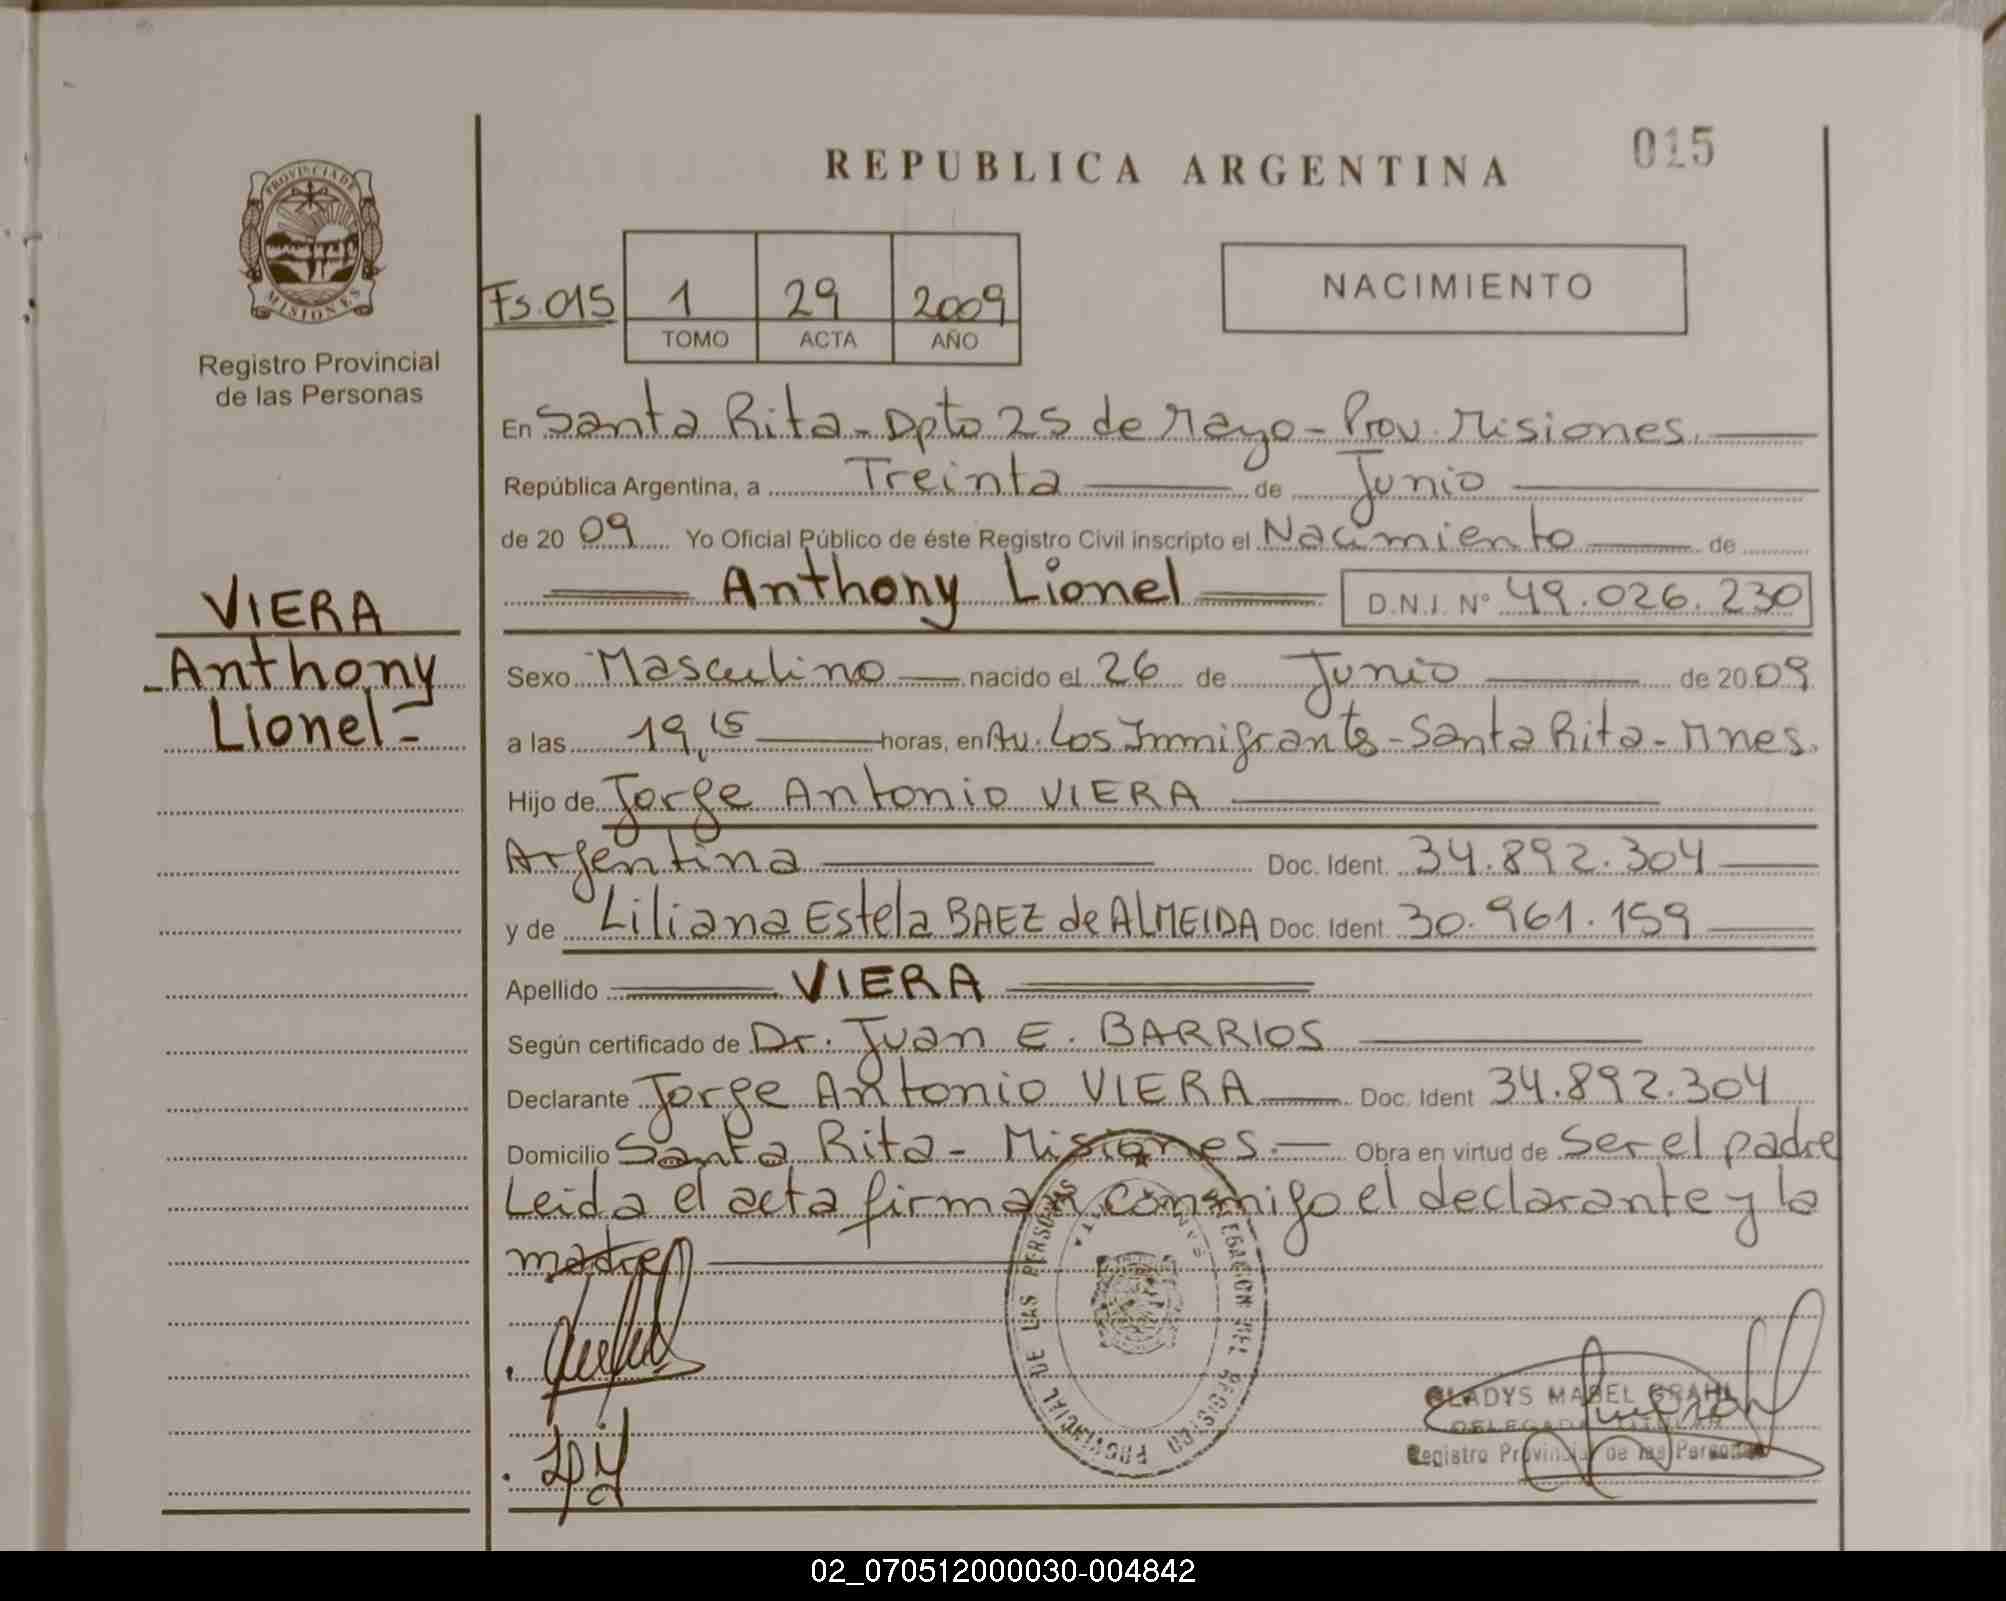 REPUBLICA ARGENTINA
015
PROVINCIA DE
MISIONES
Registro Provincial
de las Personas
Fs. 015
1 29 2009
TOMO ACTA AÑO
NACIMIENTO
En Santa Rita - Dpto 25 de Mayo - Prov. Misiones.
República Argentina, a Treinta de Junio
de 20 09 Yo Oficial Público de éste Registro Civil inscripto el Nacimiento de
Anthony Lionel D.N.I. N° 49.026.230
VIERA
Anthony
Lionel-
Sexo Masculino nacido el 26 de Junio de 2009
a las 19,15 horas, en Av. Los Immigrantes - Santa Rita - Mnes.
Hijo de Jorge Antonio VIERA
Argentina Doc. Ident. 34.892.304
y de Liliana Estela BAEZ de ALMEIDA Doc. Ident. 30.961.159
Apellido VIERA
Según certificado de Dr. Juan E. BARRIOS
Declarante Jorge Antonio VIERA Doc. Ident 34.892.304
Domicilio Santa Rita - Misiones. Obra en virtud de Ser el padre
Leida el acta firman conmigo el declarante y la
madre
DELEGACION DEL REGISTRO PROVINCIAL DE LAS PERSONAS
GLADYS MABEL GRAHL
DELEGADA TITULAR
Registro Provincial de las Personas
02_070512000030-004842